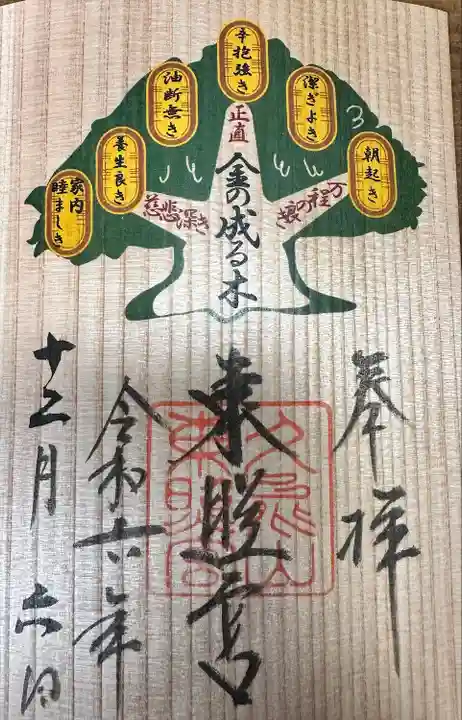 朝起き
潔ぎよき
辛抱強き
油断無き
養生良き
家内
睦ましき
万程の
正直
慈悲深き
金の成る木
奉拝
東照宮
久能山
東照宮
令和六年
十二月六日